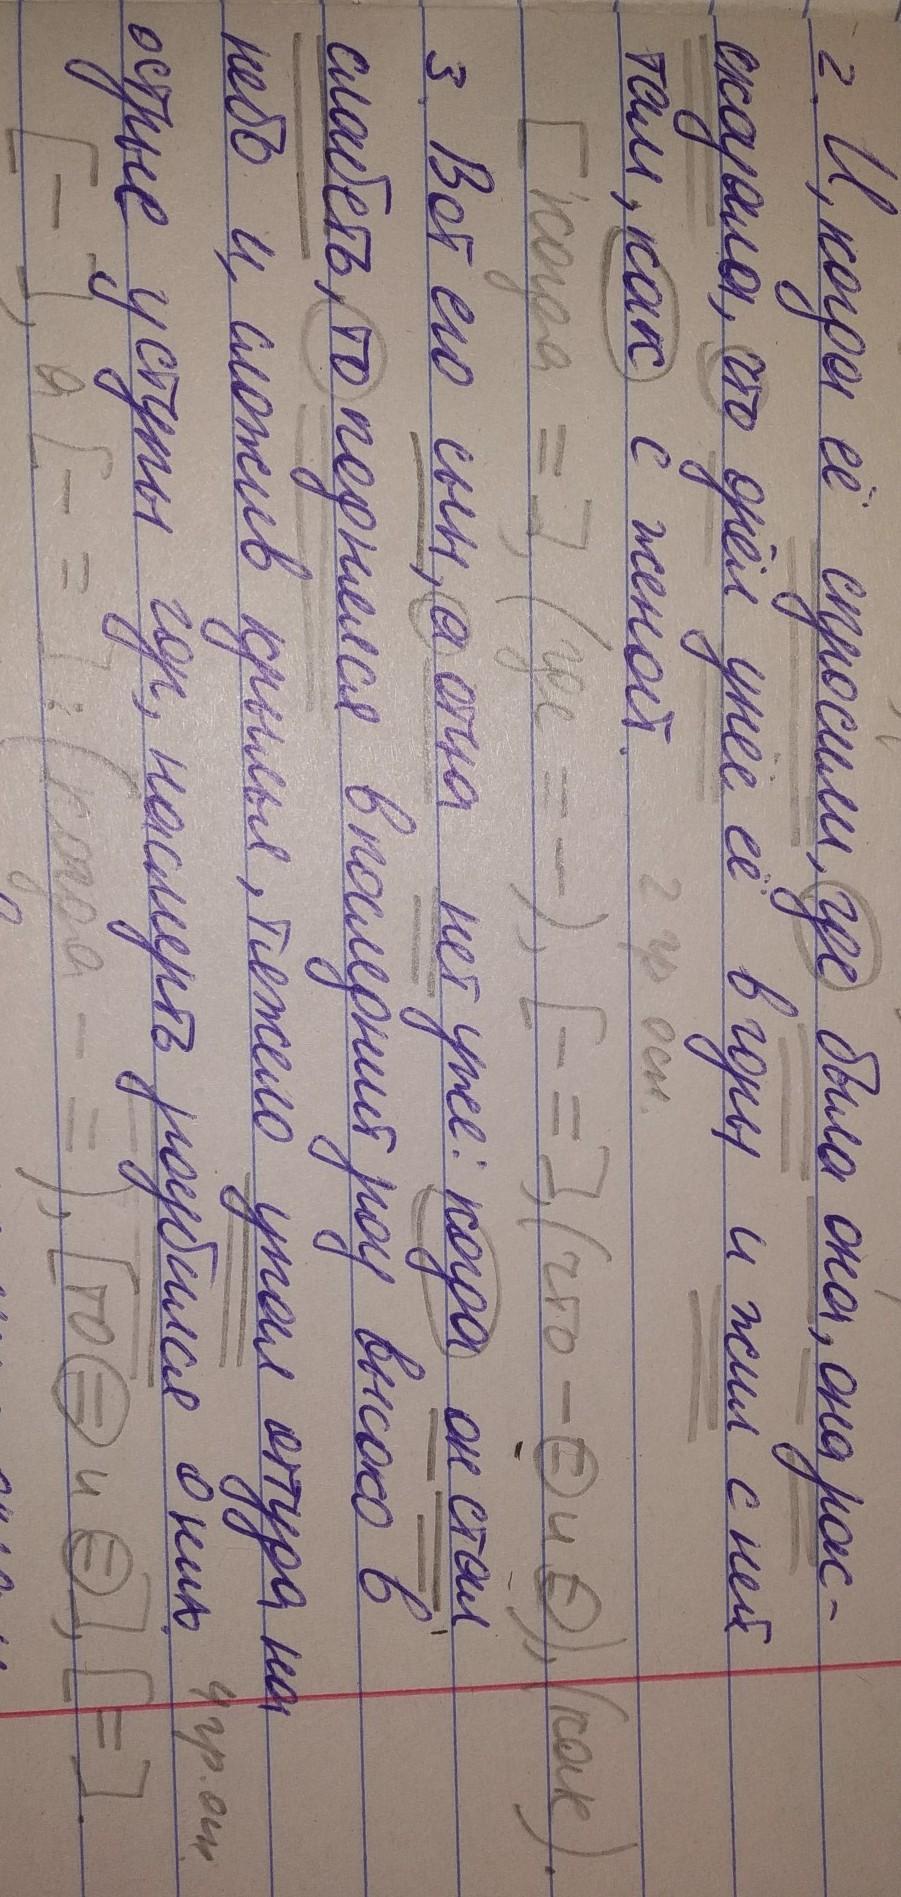 2. И, когда её спросили, где была она, она рас-
сказала, что орёл унёс её в горы и жил с ней
там, как с женой. 2 гр. осн.
[когда =], (где = -), [- =], (что - = и =), (как).
3. Вот его сын, а отца нет уже: когда он стал
слабеть, то поднялся в последний раз высоко в
небо и, сложив крылья, тяжело упал оттуда на
острые уступы гор, насмерть разбился о них. 4 гр. осн.
[- -], а [- =]: (когда - =), [то = и =], [=].